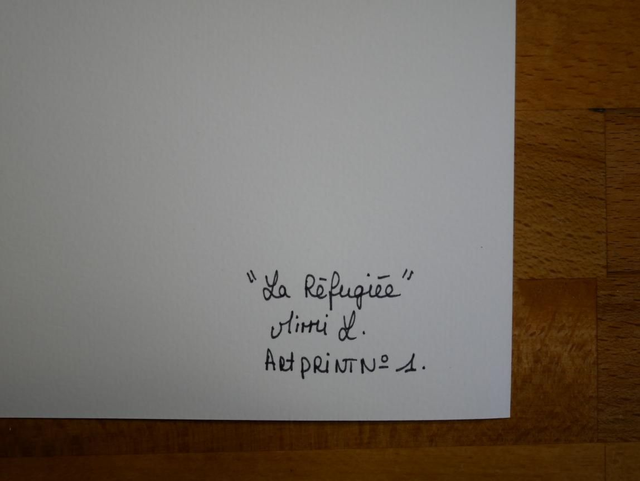 "La Réfugiée"
L.
Artprint Nº 1.